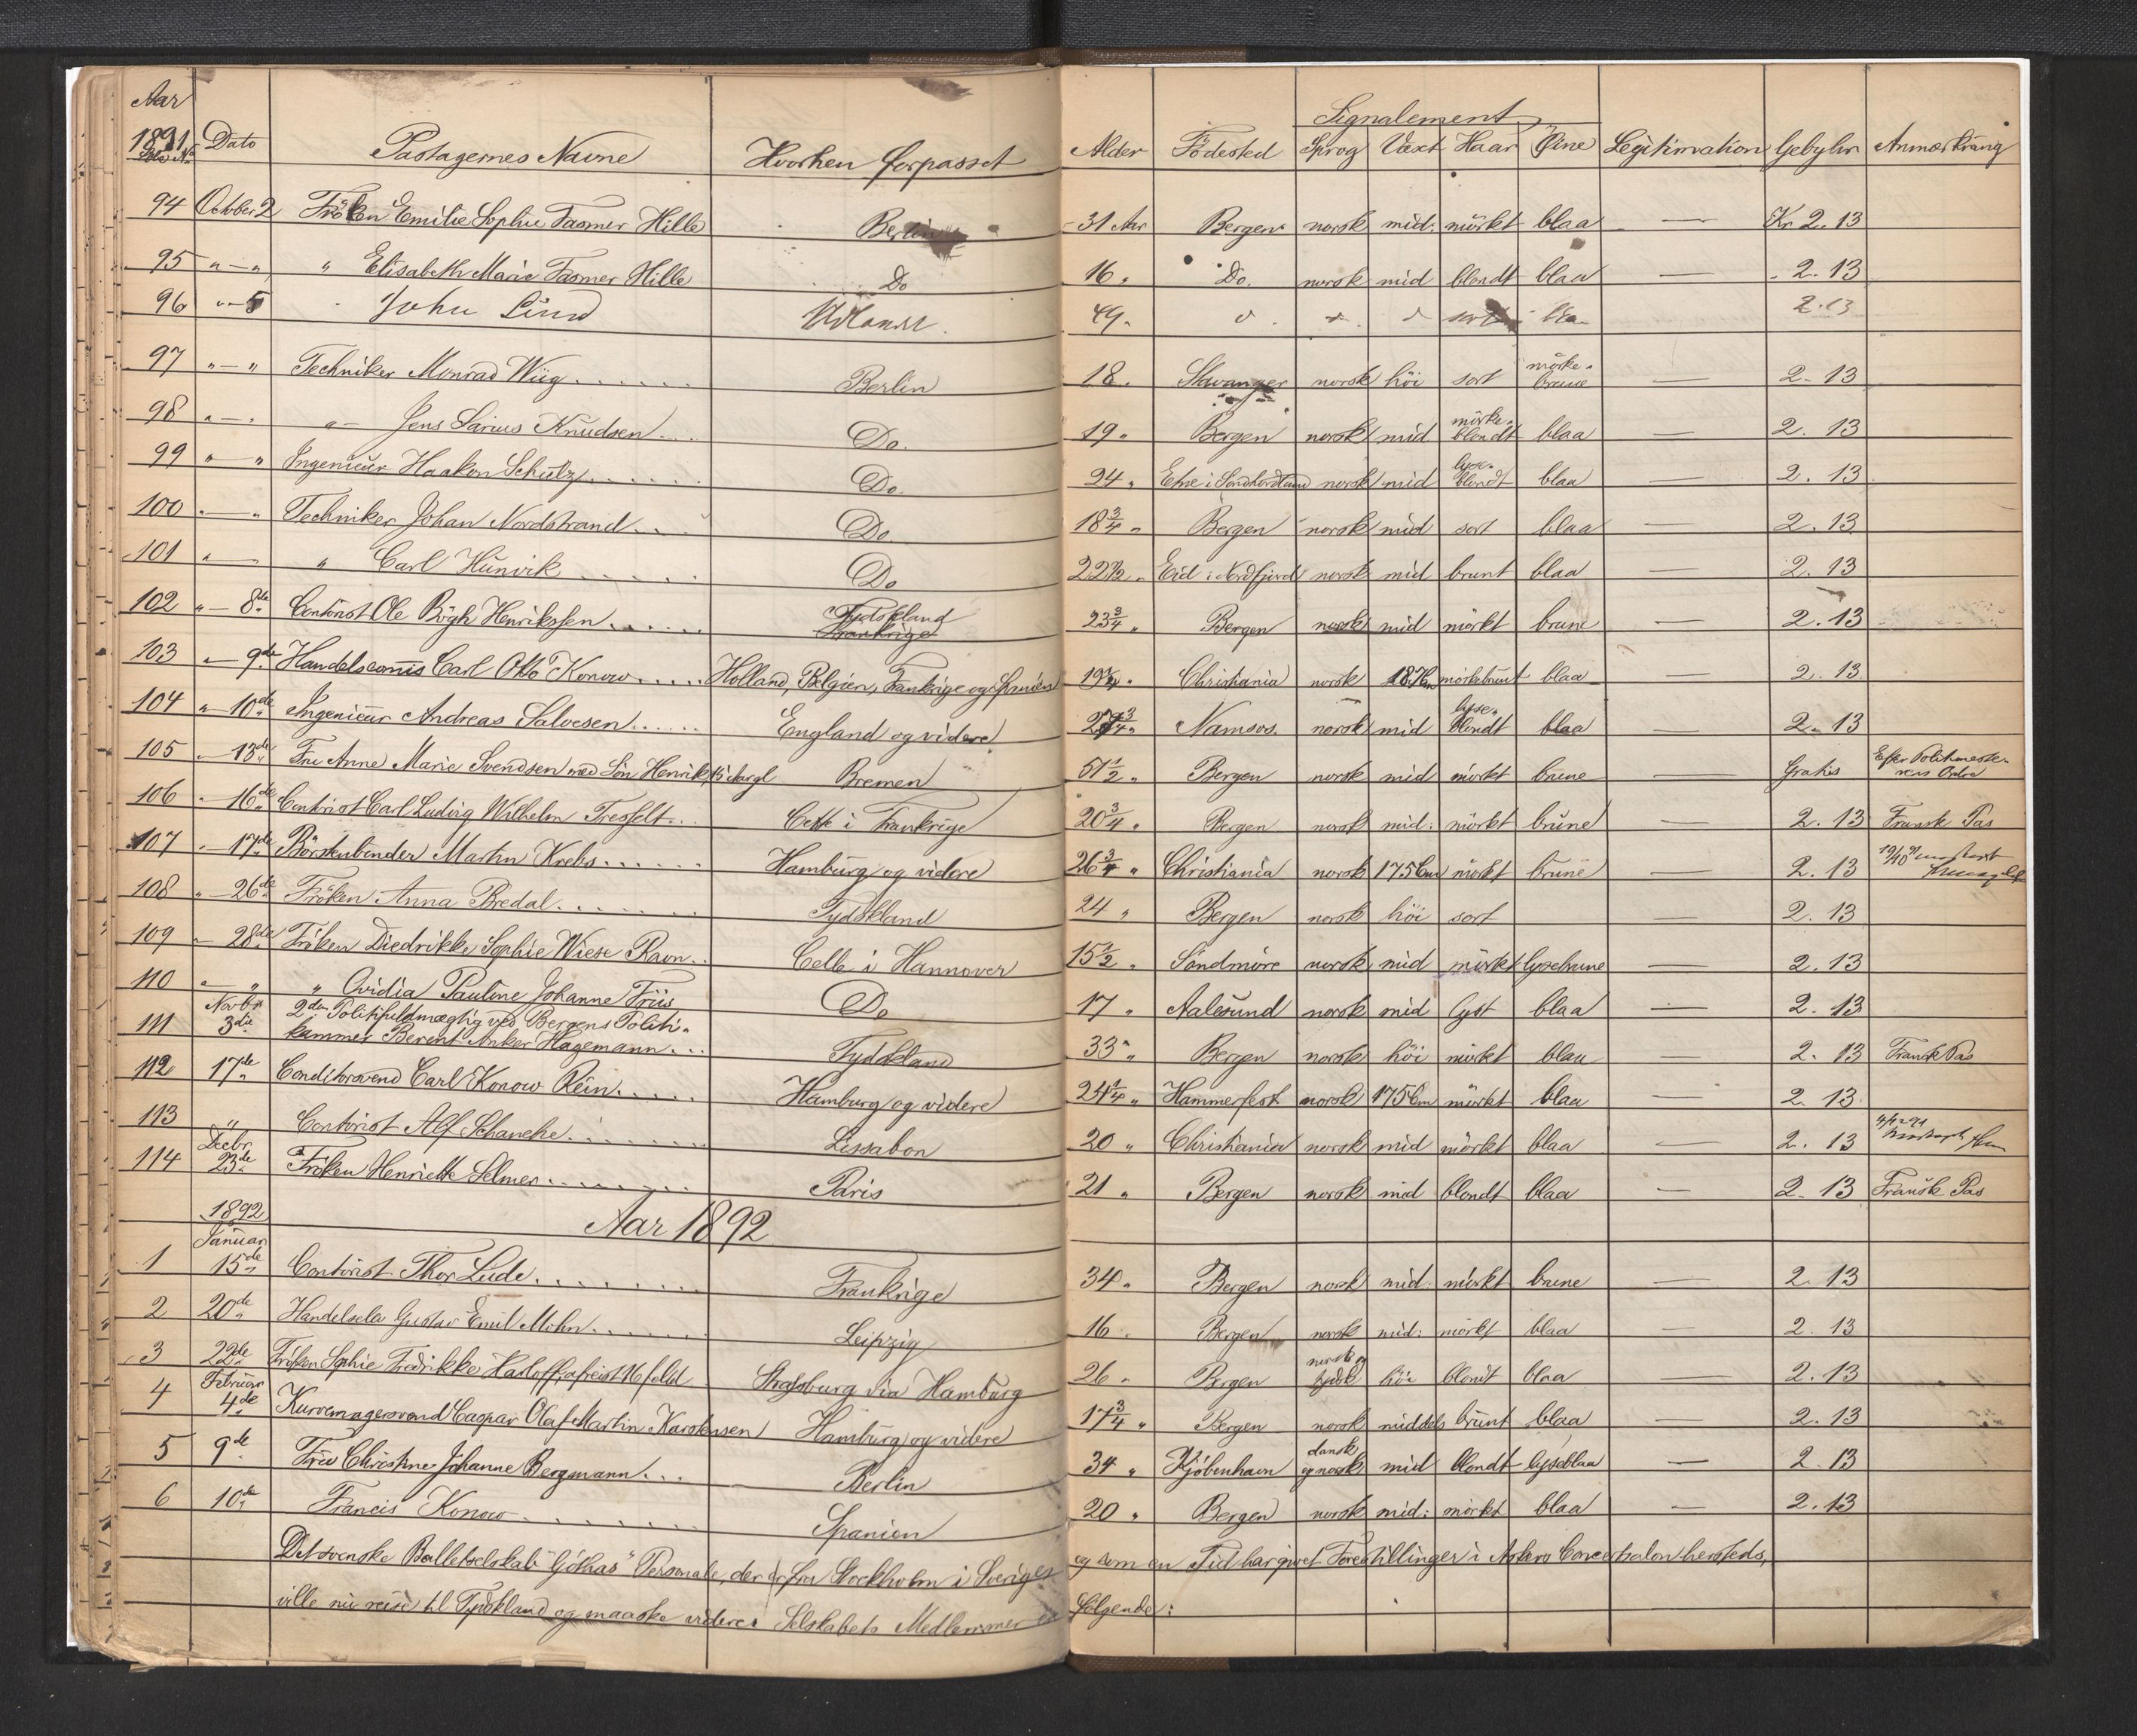 Aar
1891 Dato Passagernes Navne Hvorhen forpasset Alder Födested Signalement Sprog Væxt Haar Øine Legitimation Gebyhr Anmærkning
Löbe No
94 October 2 Fröken Emilie Sophie Fasmer Hille Berlin 31 Aar Bergen norsk mid: mörkt blaa — Kr 2.13
95 „ — „ „ Elisabeth Marie Fasmer Hille Do 16 „ Do. norsk mid blondt blaa — 2.13
96 „ — 5 John Lind Udlandet 49 „ sort blaa 2.13
97 „ — „ Techniker Monrad Wiig Berlin 18 „ Stavanger norsk höi sort mörke- brune — 2.13
98 „ — „ „ — Jens Sarius Knudsen Do. 19 „ Bergen norsk mid mörke- blondt blaa — 2.13
99 „ — „ Ingeniör Haakon Schütz Do. 24 „ Etne i Söndhordland norsk mid lyse- blondt blaa — 2.13
100 „ — „ Techniker Johan Nordstrand Do 18 3/4 „ Bergen norsk mid sort blaa — 2.13
101 „ — „ Carl Hunvik Do 22 1/2 „ Eid i Nordfjord norsk mid brunt blaa — 2.13
102 „ — 8de Contorist Ole Bögh Henrikssen Tydskland Frankrige 23 3/4 „ Bergen norsk mid mörkt brune — 2.13
103 „ — 9de Handelscommis Carl Otto Konow Holland, Belgien, Frankrige og Spanien 19 „ Christiania norsk mörkebrunt blaa — 2.13
104 „ — 10de Ingeniör Andreas Salvesen England og videre 3/4 „ Namsos norsk mid lyse- blondt blaa — 2.13
105 „ — 13de Fru Anne Marie Svendsen med Sön Henrik, 15 Aargl Bremen 51 1/2 „ Bergen norsk mid mörkt brune — Gratis Efter Politimeste- rens Ordre
106 „ — 16de Contorist Carl Ludvig Wilhelm Tresselt Cette i Frankrige 20 3/4 „ Bergen norsk mid: mörkt brune — 2.13 Fransk Pas
107 „ — 17de Börstenbinder Martin Krebs Hamburg og videre 26 3/4 „ Christiania norsk 175 Cm mörkt brune — 2.13
108 „ — 26de Fröken Anna Bredal Tydskland 24 „ Bergen norsk höi sort — 2.13
109 „ — 28de Fröken Diedrikke Sophie Wiese Ravn Celle i Hannover 15 1/2 „ Söndmöre norsk mid mörkt lysebrune — 2.13
110 „ „ „ Ovidia Pauline Johanne Friis Do 17 „ Aalesund norsk mid lyst blaa — 2.13
111 Novbr 3die 2den Politifuldmægtig ved Bergens Politi-
kammer Berent Anker Hagemann Tydskland 33 „ Bergen norsk höi mörkt blaa — 2.13 Fransk Pas
112 17de Conditorsvend Carl Konow Rein Hamburg og videre 24 1/4 „ Hammerfest norsk 175 Cm mörkt blaa — 2.13
113 „ Contorist Alf Schanche Lissabon 20 „ Christiania norsk mid mörkt blaa — 2.13
114 Decbr 23de Fröken Henriette Selmer Paris 21 „ Bergen norsk mid blondt blaa — 2.13 Fransk Pas
1892 Aar 1892
Januar
1 15de Contorist Thor Lude Frankrige 34 „ Bergen norsk mid: mörkt brune — 2.13
2 20de Handelselev Gustav Emil Mohn Leipzig 16 „ Bergen norsk mid: mörkt blaa — 2.13
3 22de Fröken Sophie Fredrikke Harloff, afreist 16 feb Strassburg via Hamburg 26 „ Bergen norsk og tydsk höi blondt blaa — 2.13
Februar
4 4de Kurvemagersvend Caspar Olaf Martin Karstensen Hamburg og videre 17 3/4 „ Bergen norsk middels brunt blaa — 2.13
5 9de Fru Christine Johanne Bergmann Berlin 34 „ Kjöbenhavn dansk og norsk mid blondt lyseblaa — 2.13
6 10de Francis Konow Spanien 20 „ Bergen norsk mid: mörkt blaa — 2.13
Det svenske Balletselskab "Göthas" Personale, der er fra Stockholm i Sverige og som en Tid har givet Forestillinger i Concertsalon hersteds,
ville nu reise til Tydskland og maaske videre. Selskabets Medlemmer er følgende: